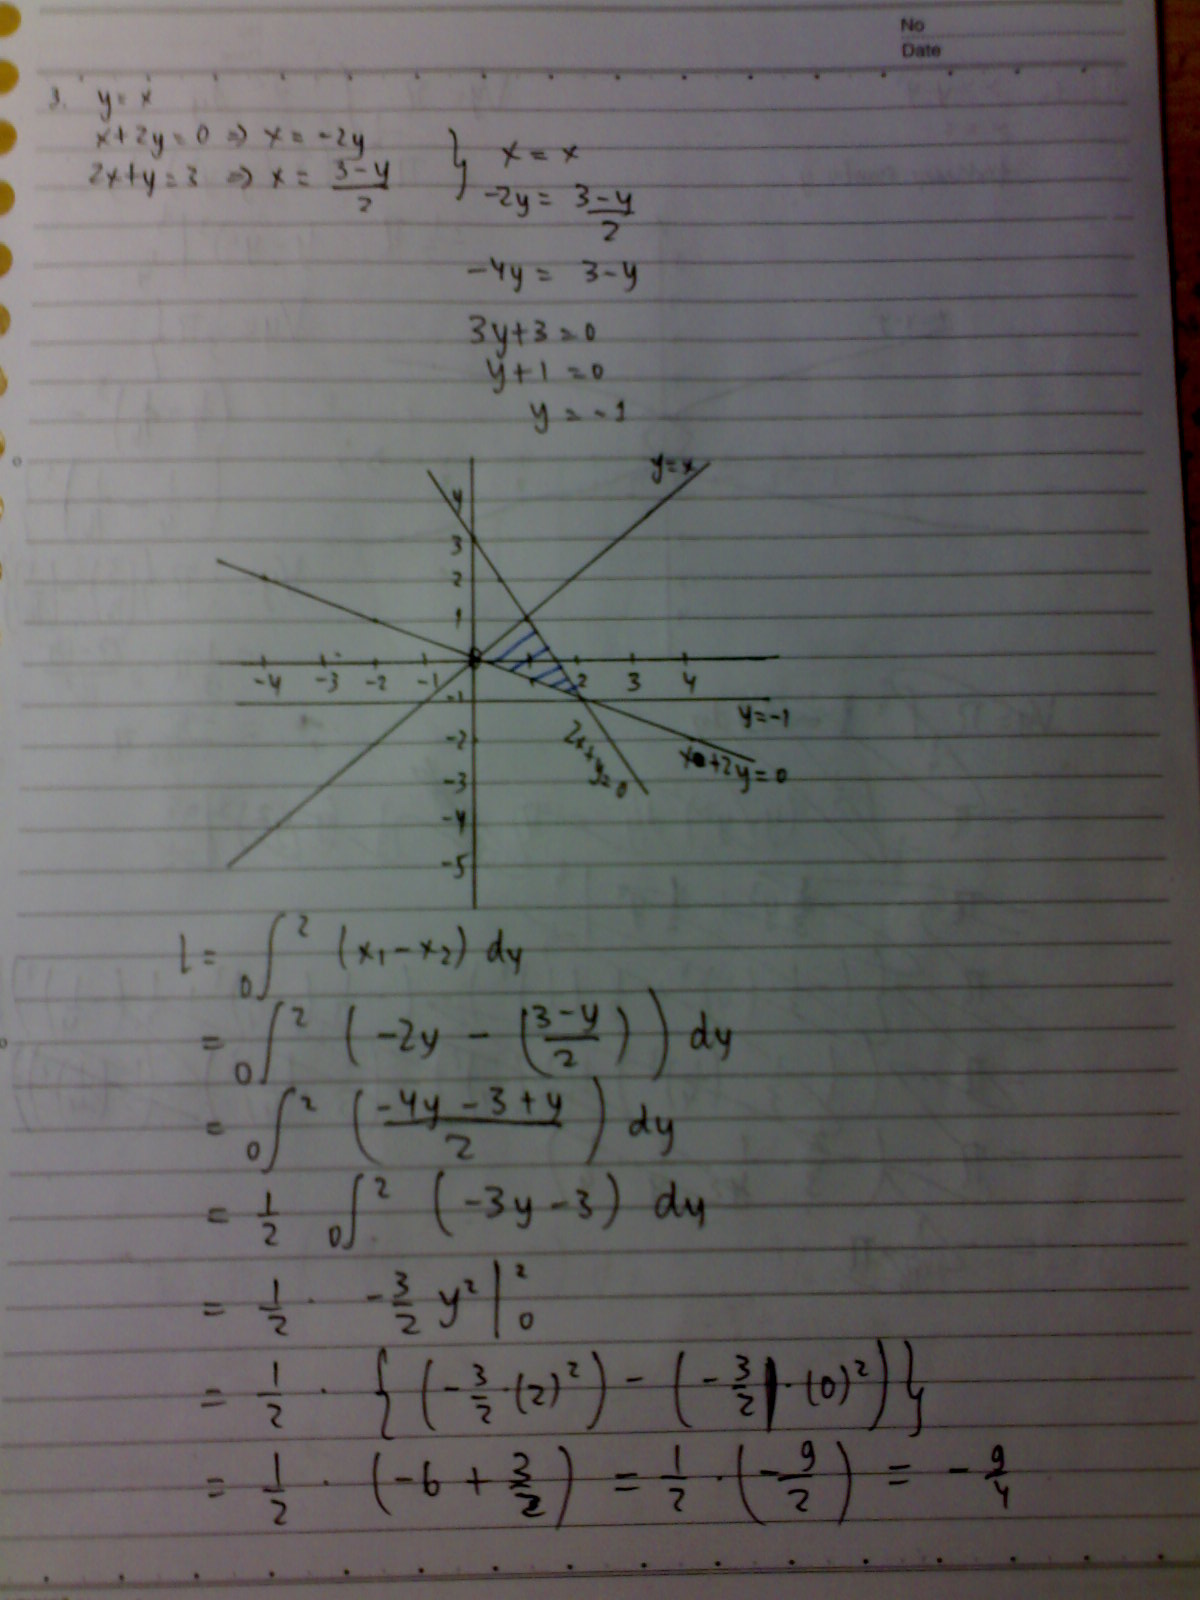 No
Date
3. y = x
x+2y=0 ⇒ x = -2y
2x+y=3 ⇒ x = (3-y)/2
} x = x
-2y = (3-y)/2
-4y = 3-y
3y+3=0
y+1=0
y = -1
y=x
4
3
2
1
-4 -3 -2 -1 1 2 3 4
-1
y=-1
-2
x+2y=0
2x+y=0
-3
-4
-5
l = ₀∫² (x₁-x₂) dy
= ₀∫² (-2y - ((3-y)/2)) dy
= ₀∫² ((-4y-3+y)/2) dy
= 1/2 ₀∫² (-3y-3) dy
= 1/2 · -3/2 y² |₀²
= 1/2 · {(-3/2·(2)²) - (-3/2·(0)²)}
= 1/2 · (-6 + 3/2) = 1/2 · (-9/2) = -9/4